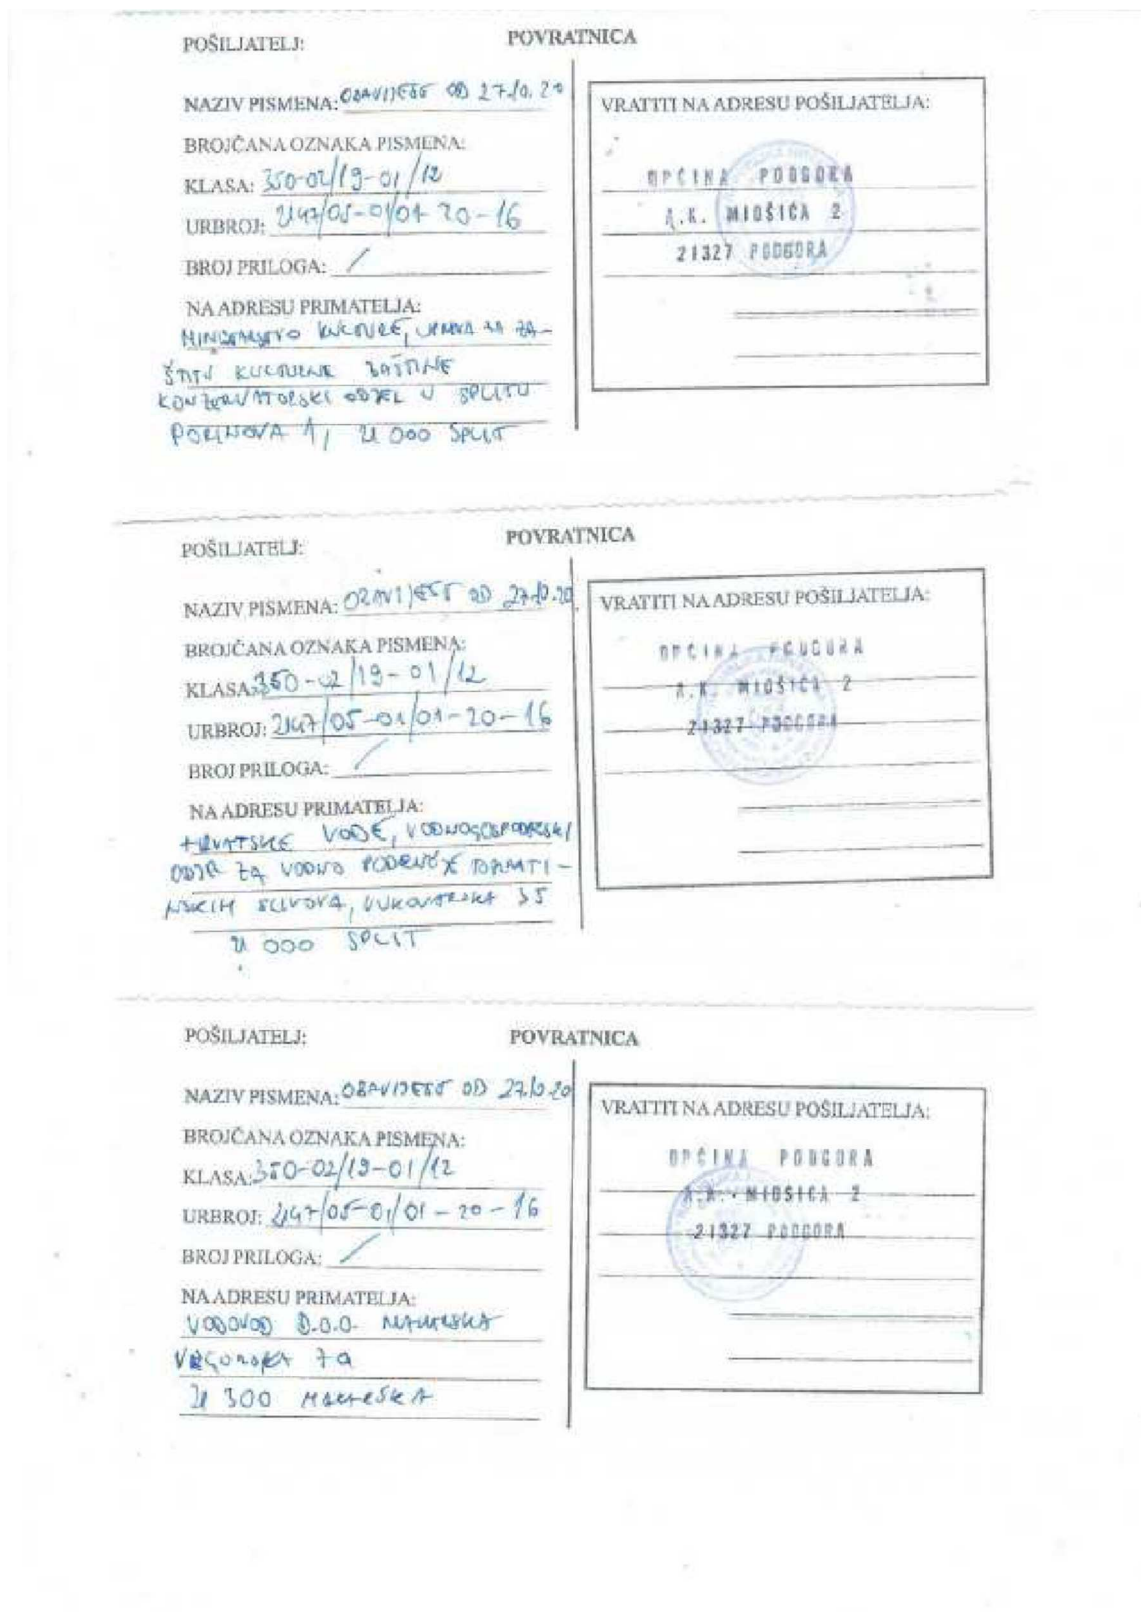 POŠILJATELJ:
POVRATNICA
NAZIV PISMENA: OBAVIJEST OD 27.10.20
BROJČANA OZNAKA PISMENA:
KLASA: 350-02/19-01/12
URBROJ: 2147/05-01/01-20-16
BROJ PRILOGA: /
NA ADRESU PRIMATELJA:
MINISTARSTVO KULTURE, UPRAVA ZA ZA-
ŠTITU KULTURNE BAŠTINE
KONZERVATORSKI ODJEL U SPLITU
PORINOVA 1, 21 000 SPLIT
VRATITI NA ADRESU POŠILJATELJA:
OPĆINA PODGORA
A.K. MIOŠIĆA 2
21327 PODGORA
POŠILJATELJ:
POVRATNICA
NAZIV PISMENA: OBAVIJEST OD 27.10.20.
BROJČANA OZNAKA PISMENA:
KLASA: 350-02/19-01/12
URBROJ: 2147/05-01/01-20-16
BROJ PRILOGA: /
NA ADRESU PRIMATELJA:
HRVATSKE VODE, VODNOGOSPODARSKI
ODJEL ZA VODNO PODRUČJE DALMATI-
NSKIH SLIVOVA, VUKOVARSKA 35
21 000 SPLIT
VRATITI NA ADRESU POŠILJATELJA:
OPĆINA PODGORA
A.K. MIOŠIĆA 2
21327 PODGORA
POŠILJATELJ:
POVRATNICA
NAZIV PISMENA: OBAVIJEST OD 27.10.20
BROJČANA OZNAKA PISMENA:
KLASA: 350-02/19-01/12
URBROJ: 2147/05-01/01-20-16
BROJ PRILOGA: /
NA ADRESU PRIMATELJA:
VODOVOD D.O.O. MAKARSKA
VRGORSKA 7a
21 300 MAKARSKA
VRATITI NA ADRESU POŠILJATELJA:
OPĆINA PODGORA
A.K. MIOŠIĆA 2
21327 PODGORA